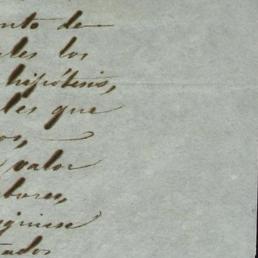 nto de
les los
hipótesis,
les que
os,
valor
bores,
giniese
tados